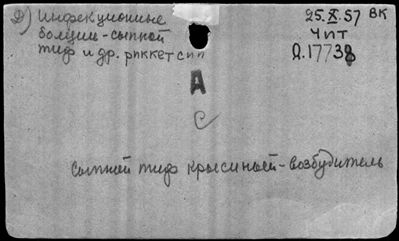 2) Инфекционные
болезни - сыпной
тиф и др. риккетсии
25.X.57 ВК
Чит
Д.17738
А
С
Сыпной тиф крысиный - возбудитель